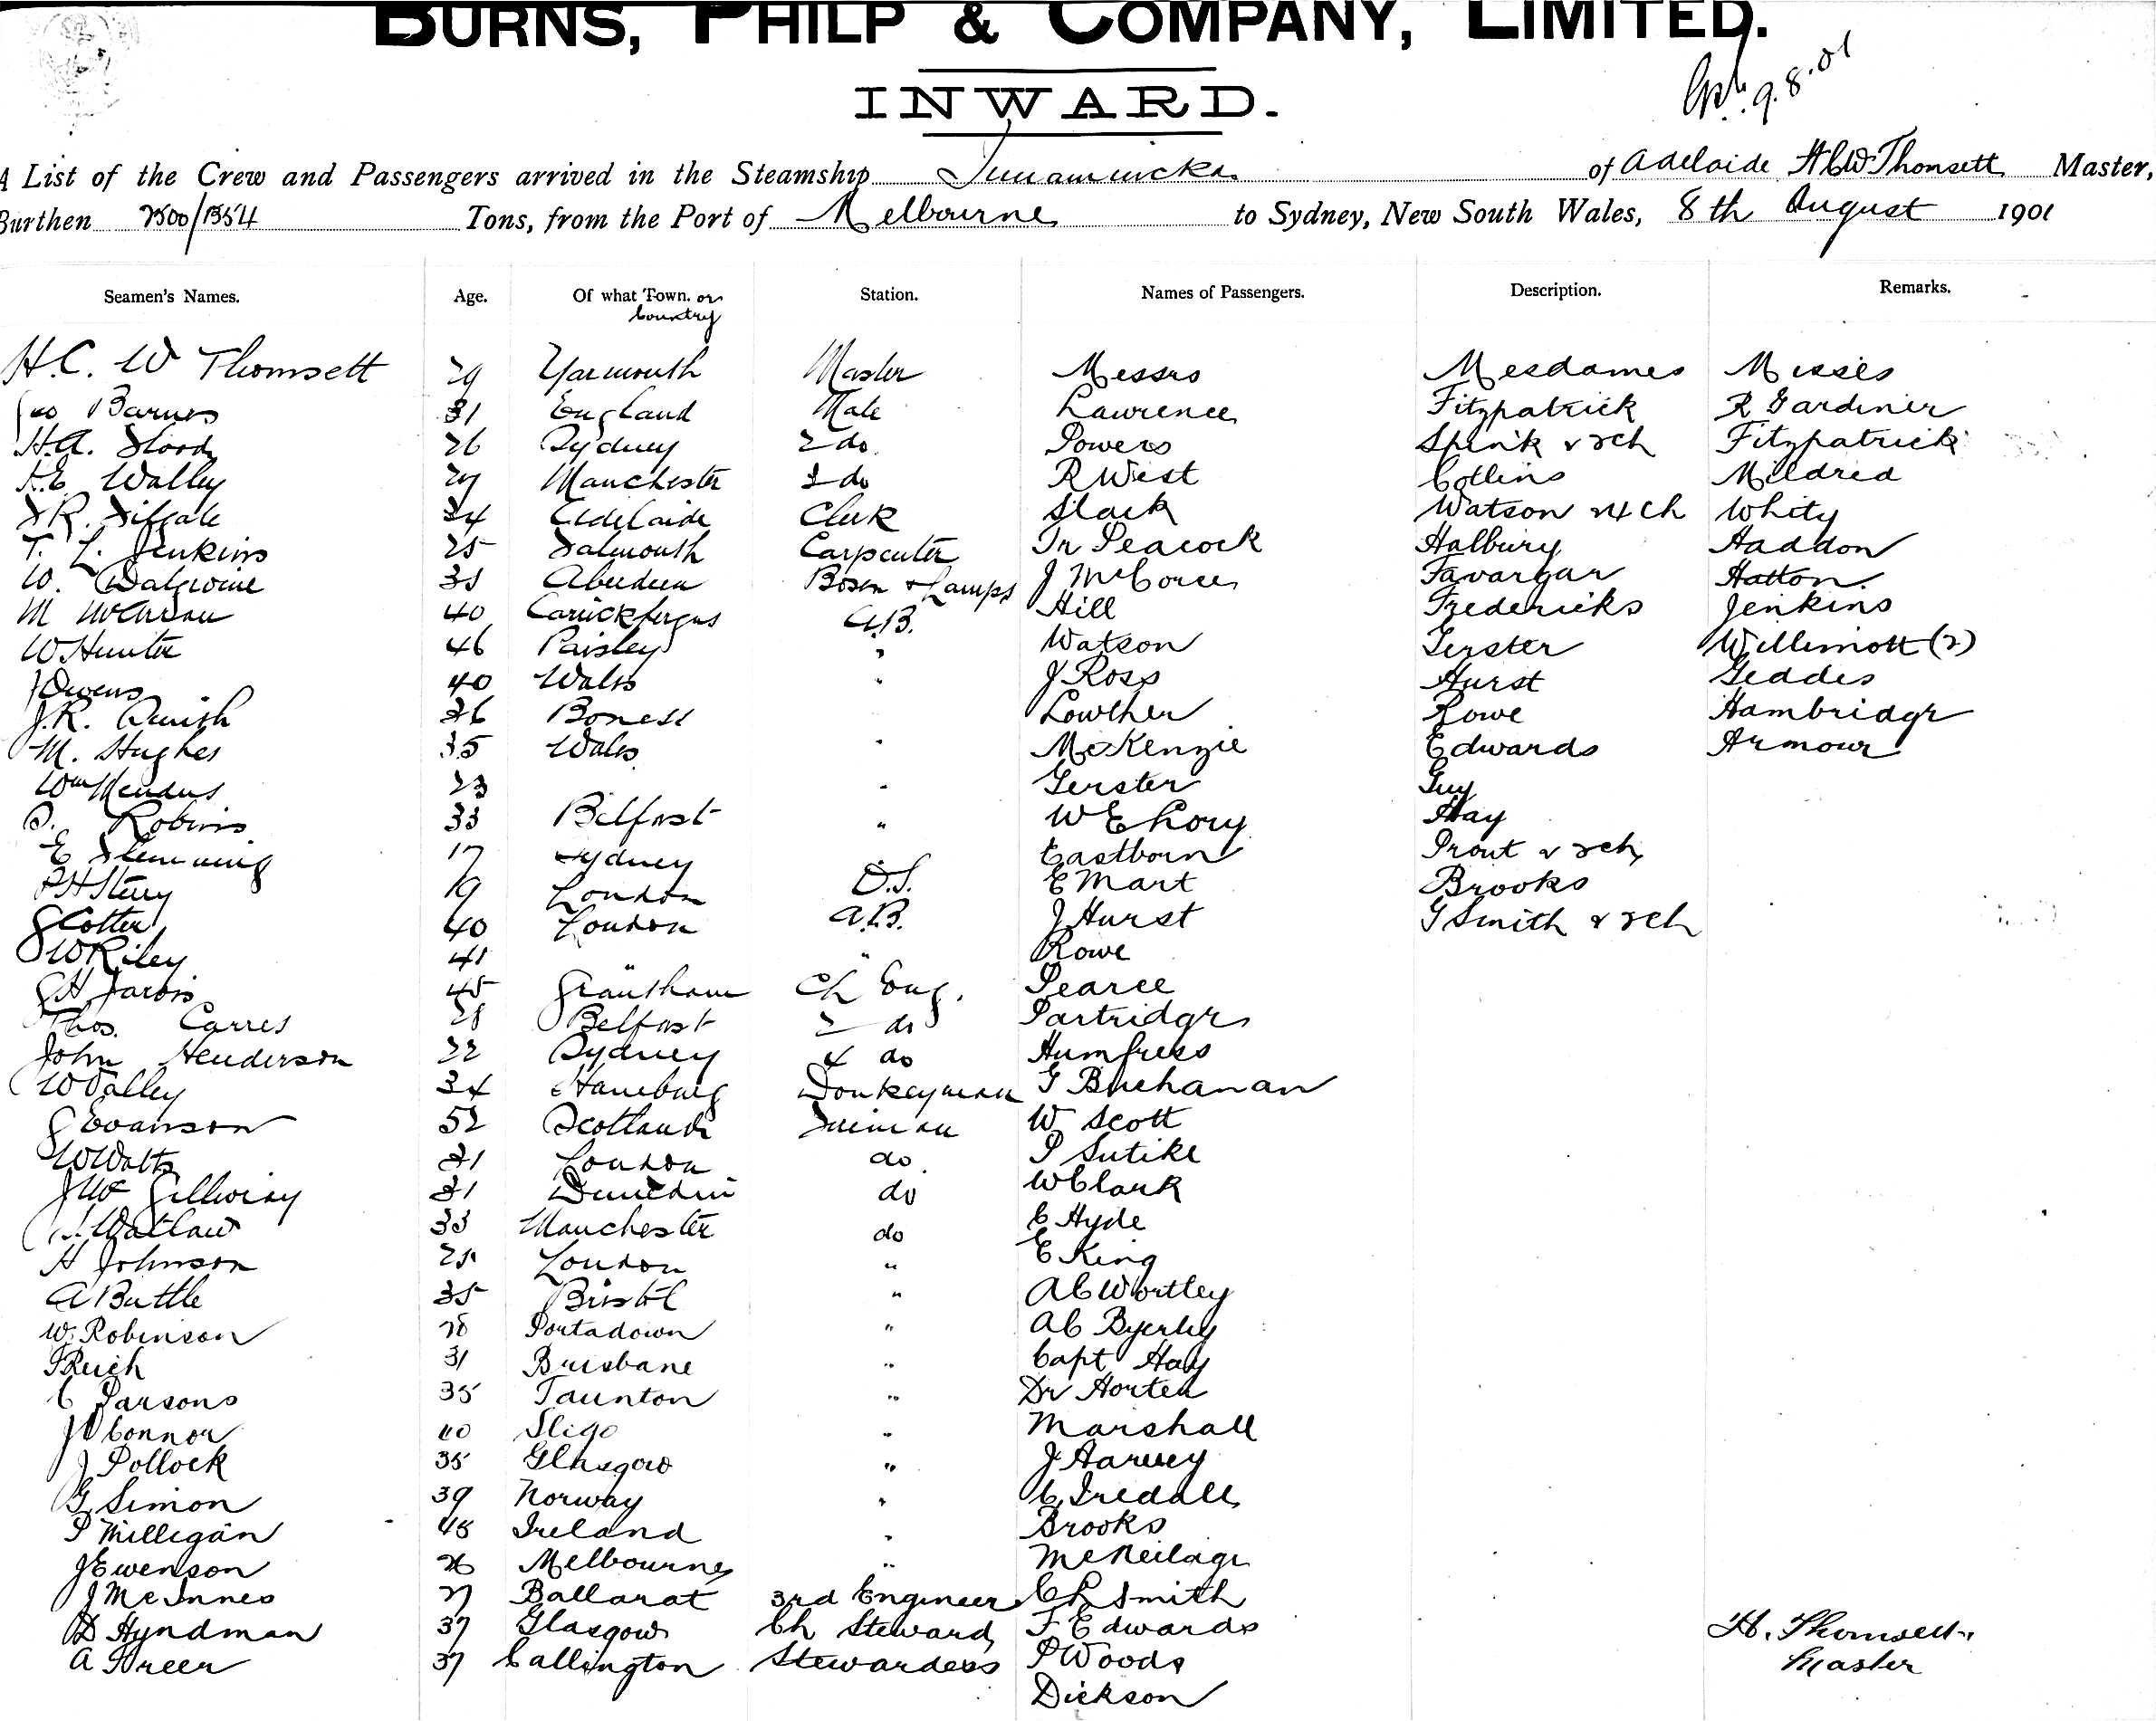 BURNS, PHILP & COMPANY, LIMITED.
INWARD.
9.8.01
A List of the Crew and Passengers arrived in the Steamship Innamincka of Adelaide H C W Thomsett Master,
Burthen 2500/1554 Tons, from the Port of Melbourne to Sydney, New South Wales, 8th August 1901
Seamen's Names. Age. Of what Town. or Country Station. Names of Passengers. Description. Remarks.
H.C. W Thomsett 29 Yarmouth Master Messrs Mesdames Misses
Geo Barnes 31 England Mate Lawrence Fitzpatrick R Gardiner
H.A. Flood 26 Sydney 2 do Powers Spink & 2ch Fitzpatrick
Walley 27 Manchester 3 do R West Collins Mildred
34 Adelaide Clerk Slack Watson & 4 ch Whity
T. L. Jenkins 25 Falmouth Carpenter Peacock Halbury Haddon
W. 35 Aberdeen Bosen & Lamps J McCorce Favargar Hatton
M 40 Carrickfergus A.B. Hill Fredericks Jenkins
W Hunter 46 Paisley " Watson Gerster Willimott (2)
J Owens 40 Wales " J Ross Hurst Geddes
J.R. 36 Boness Lowther Rowe Hambridge
M. Hughes 35 Wales " McKenzie Edwards Armour
Wm Mendus 23 " Gerster Guy
Robins 33 Belfast " W E Lory Hay
E Flemming 17 Sydney Eastborn Prout & 2ch
Sterry 19 London O.S. E Mart Brooks
J Cotter 40 London A.B. J Hurst G Smith & 2ch
W Riley 41 " " Rowe
G H Jarvis 45 Grantham Ch Eng. Pearce
Thos. Carres 28 Belfast 2 do Partridge
John Henderson 22 Sydney 4 do Humfress
W Valley 34 Hamburg Donkeyman G Buchanan
J Evanson 52 Scotland Fireman W Scott
W Watts 31 London do P Sutike
J Mc Gillivray 31 Dunedin do W Clark
Watlaw 33 Manchester do C Hyde
H Johnson 25 London " E King
A Buttle 35 Bristol " A C Wortley
W. Robinson 28 Portadown " A C Byerley
Reich 31 Brisbane " Capt Hay
C Parsons 35 Taunton " Dr Horten
J O'Connor 40 Sligo " Marshall
J Pollock 35 Glasgow " J Harvey
G Simon 39 Norway " C Iredall
P Milligan 45 Ireland " Brooks
J Ewenson 26 Melbourne " McNeilage
J McInnes 27 Ballarat 3rd Engineer C L Smith
D Hyndman 37 Glasgow Ch Steward F Edwards H. Thomsett
A Greer 37 Callington Stewardess P Woods Master
Dickson